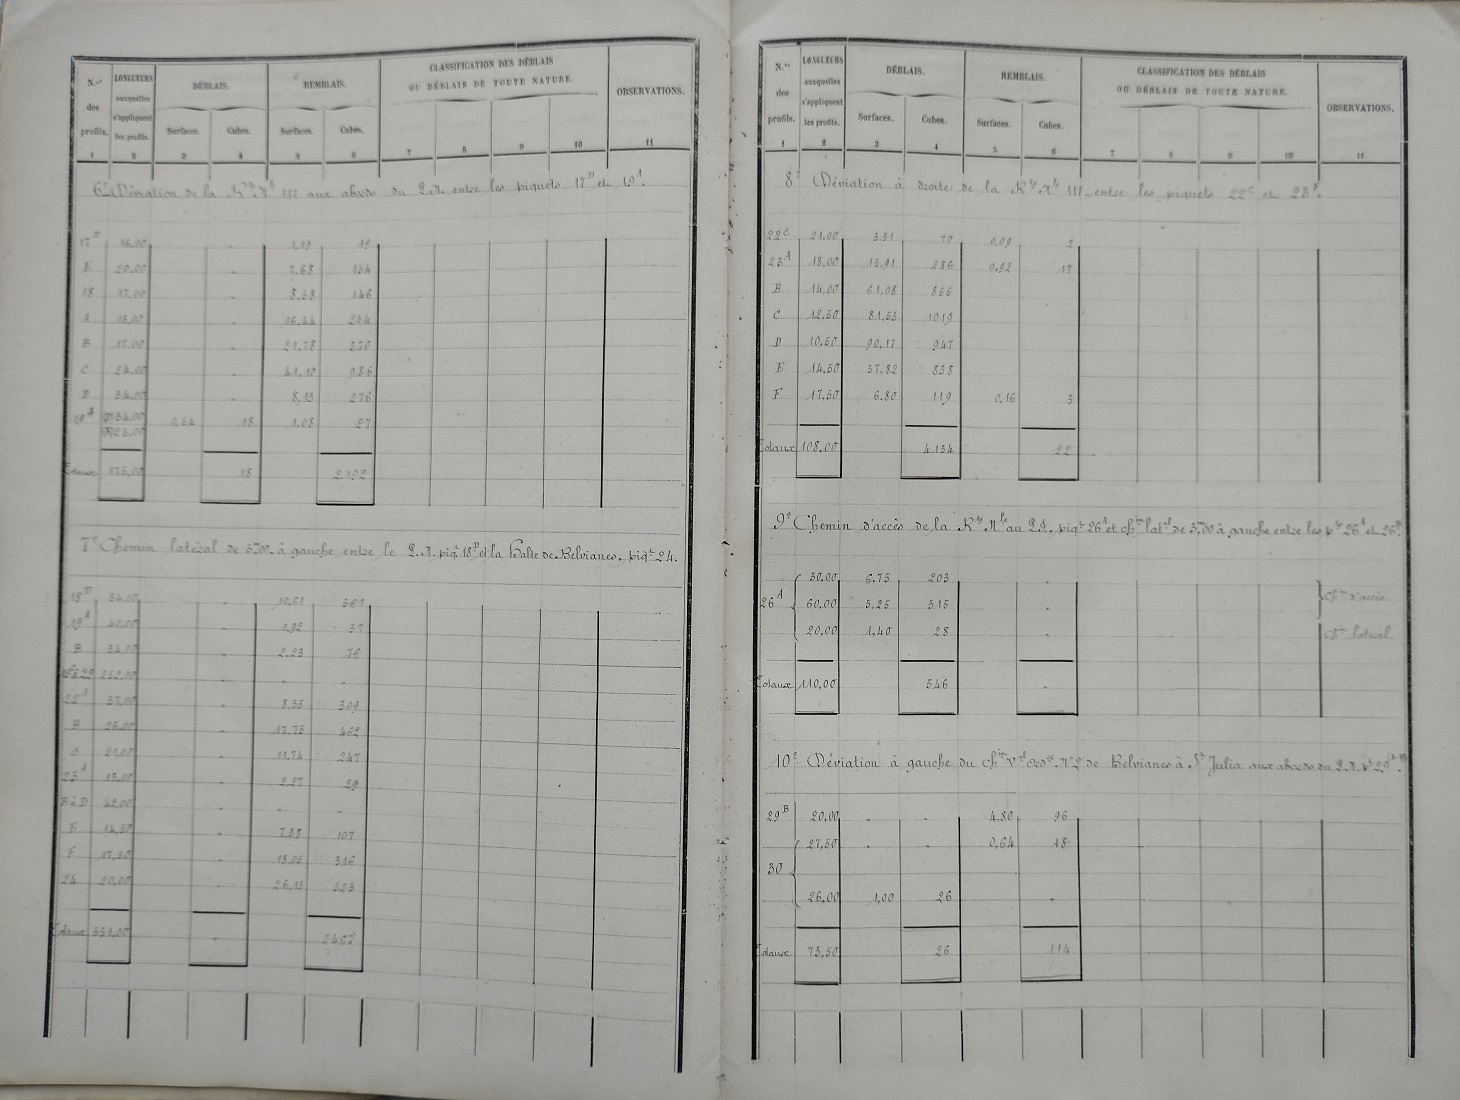 N.os des profils. LONGUEURS auxquelles s'appliquent les profils. DÉBLAIS. REMBLAIS. CLASSIFICATION DES DÉBLAIS OU DÉBLAIS DE TOUTE NATURE. OBSERVATIONS.
Surfaces. Cubes. Surfaces. Cubes.
1 2 3 4 5 6 7 8 9 10 11
6° Déviation de la Rte Nle 117 aux abords du P.N. entre les piquets 17D et 19A.
17D 16.00 . 1,19 19
E 20.00 . 7.68 154
18 17.00 . 8.58 146
A 13.00 . 16.44 214
B 17.00 . 21.78 370
C 24.00 . 986
D 34.00 . 8,13 276
19A 34.00 0,54 18 1,08 27
25.00
Totaux 175.00 18 2.192
7° Chemin latéral de 5m00 à gauche entre le P.N. piqt 18D et la Halte de Belvianes, piqt 24.
18D 34.00 . 10,61 361
19A 40.00 . 0,92 37
B 34.00 . 2.23 76
252,00 . . .
22A 37.00 . 8.35 309
B 26.00 . 17.75 462
C 21.00 . 11,74 247
23A 13.00 . 2.27 29
B à D 42.00 . . .
E 14.50 . 7.38 107
F 17.50 . 18.05 316
24 20.00 . 26,13 523
Totaux 551,00 . 2467
N.os des profils. LONGUEURS auxquelles s'appliquent les profils. DÉBLAIS. REMBLAIS. CLASSIFICATION DES DÉBLAIS OU DÉBLAIS DE TOUTE NATURE. OBSERVATIONS.
Surfaces. Cubes. Surfaces. Cubes.
1 2 3 4 5 6 7 8 9 10 11
8° Déviation à droite de la Rte Nle 117 entre les piquets 22C et 23F.
22C 21.00 3.31 70 0,09 2
23A 18,00 15,91 286 0,92 17
B 14,00 61.08 855
C 12,50 81,53 1019
D 10,50 90.17 947
E 14,50 57.82 838
F 17.50 6.80 119 0,16 3
Totaux 108.00 4.134 22
9° Chemin d'accès de la Rte Nle au P.N. piqt 26A et chin latal de 5m00 à gauche entre les pts 26A et 26B.
30.00 6.75 203 .
26A 60,00 5.25 315 . Chin d'accès.
20,00 1,40 28 . Chin latéral.
Totaux 110,00 546 .
10° Déviation à gauche du chin Val Ordre N°2 de Belvianes à St Julia aux abords du P.N. pt 29
29B 20.00 . . 4.80 96
27,50 . . 0,64 18
30
26,00 1,00 26 .
Totaux 73,50 26 114